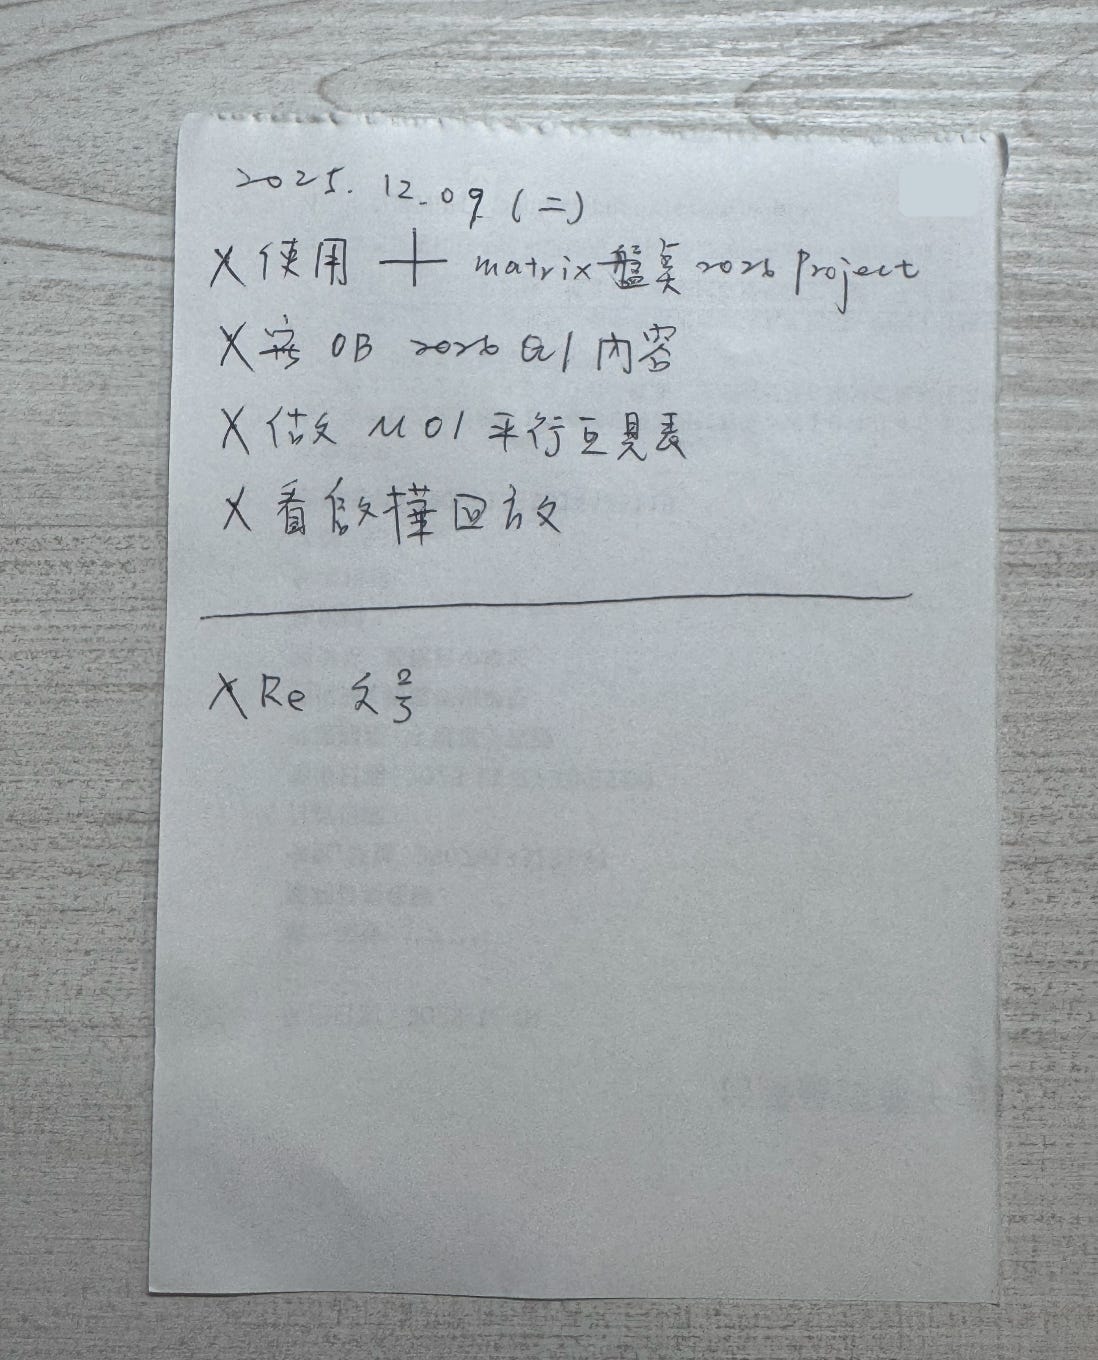 2025. 12. 09 (二)
X 使用 十 matrix 盤点 2026 Project
X 寫 OB 2026 Q1 內容
X 做 M01 平行互見表
X 看啟樺回放
X Re 文 2/3